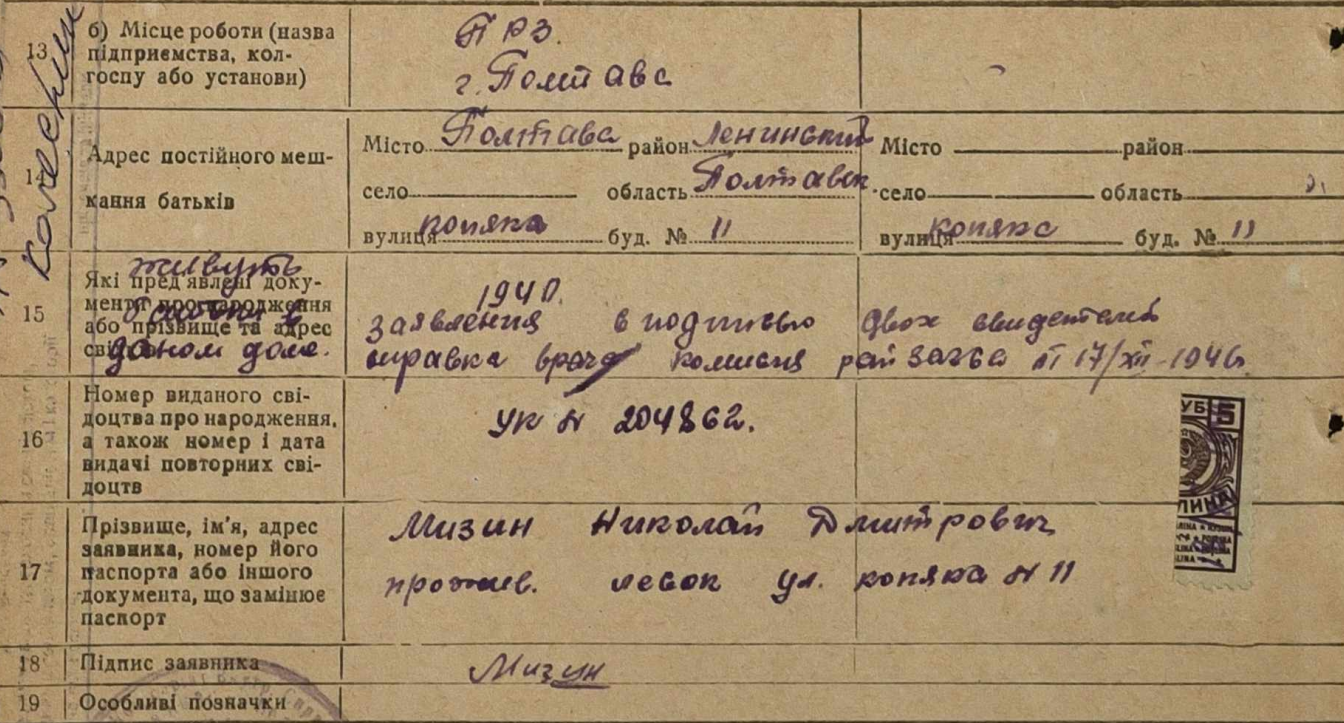 13 б) Місце роботи (назва підприємства, колгоспу або установи)
ПРЗ.
г. Полтава
14 Адрес постійного мешкання батьків
Місто Полтава район Ленинский
село область Полтавск.
вулиця Копяка буд. № 11
Місто район
село область
вулиця Копяка буд. № 11
живуть
даном доме.
15 Які пред'явлені документи про народження або прізвище та адрес
1940.
заявления с подписью двох свидетелей
справка врач комисия рай загса 17/XII-1946
16 Номер виданого свідоцтва про народження, а також номер і дата видачі повторних свідоцтв
УК N 204862.
17 Прізвище, ім'я, адрес заявника, номер його паспорта або іншого документа, що замінює паспорт
Мизин Николай Дмитрович
прожив. лесок ул. копяка N 11
18 Підпис заявника
Мизин
19 Особливі позначки
УБ 5